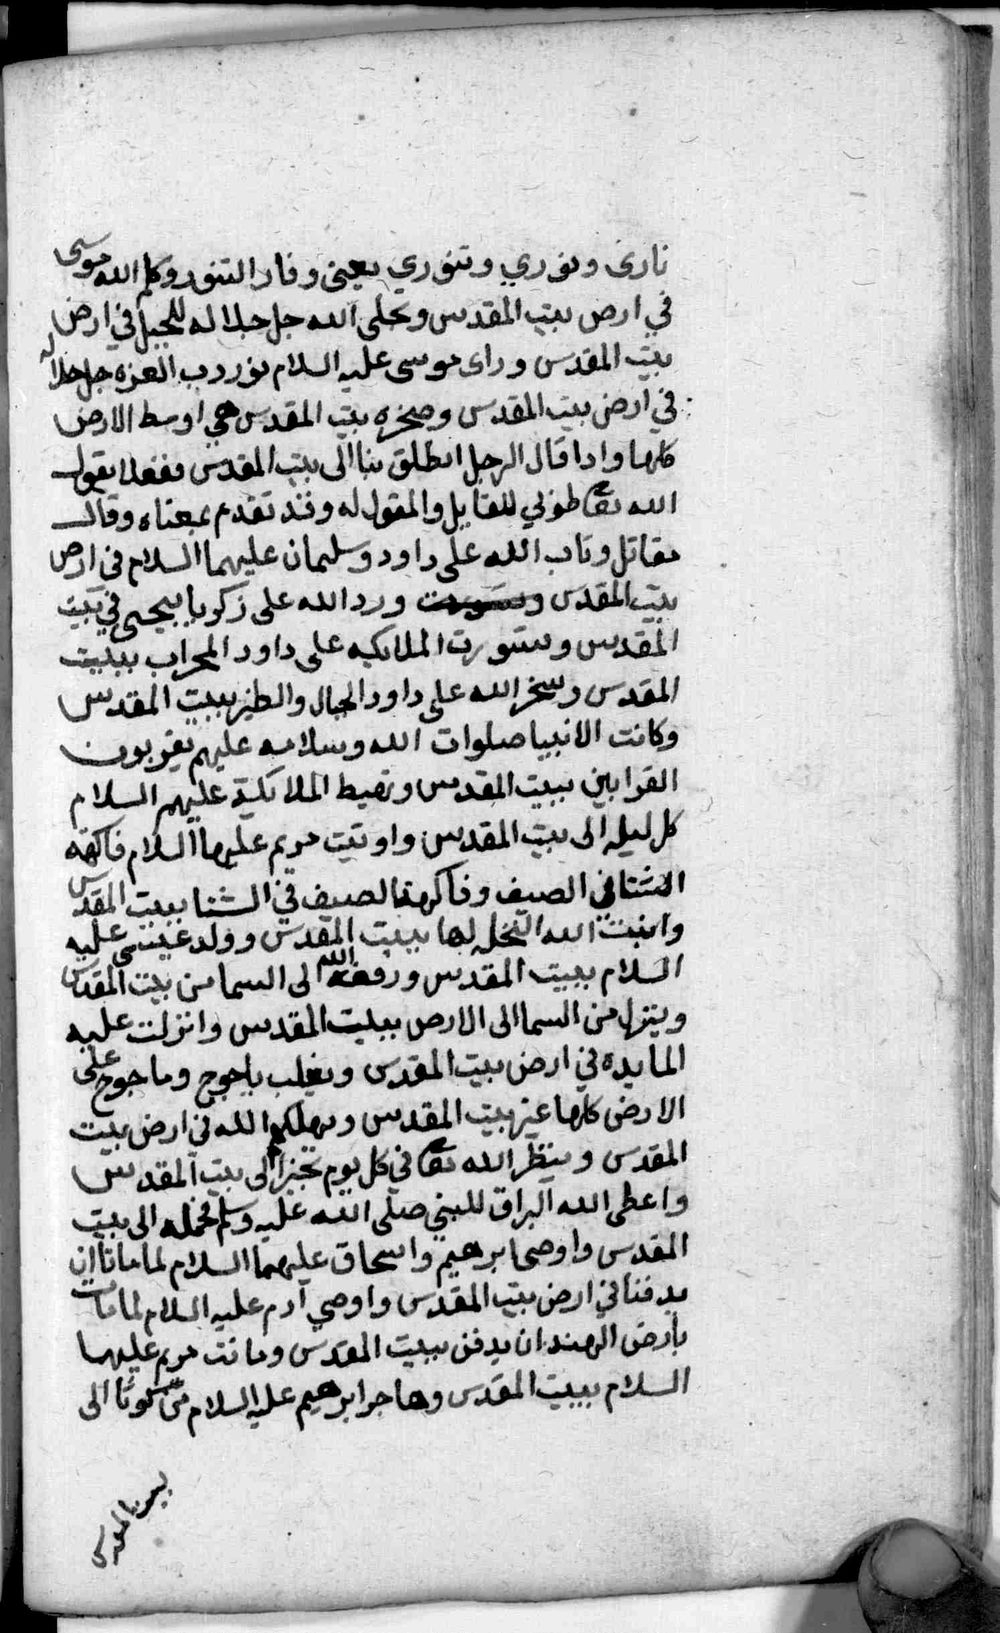 نارى ونوري وتنوري يعني وفار التنور وكلم الله موسى
في ارض بيت المقدس وتجلى الله جل جلاله للجبل في ارض
بيت المقدس وراى موسى عليه السلام نور رب العزه جل جلاله
في ارض بيت المقدس وصخره بيت المقدس هي اوسط الارض
كلها واذا قال الرجل انطلق بنا الى بيت المقدس ففعلا يقول
الله تعا طوبي للقايل والمقول له وقد تقدم بمعناه وقال
مقاتل وتاب الله على داود وسليمان عليهما السلام في ارض
بيت المقدس ورد الله على زكريا يحيى في بيت
المقدس وتسورت الملايكه على داود المحراب ببيت
المقدس وسخر الله على داود الجبال والطير ببيت المقدس
وكانت الانبيا صلوات الله وسلامه عليهم يقربون
القرابين ببيت المقدس وتهبط الملايكة عليهم السلام
كل ليله الى بيت المقدس واوتيت مريم عليها السلام فاكهة
الشتا في الصيف وفاكهة الصيف في الشتا ببيت المقدس
وانبت الله النخله لها ببيت المقدس وولد عيسى عليه
السلام ببيت المقدس ورفعه الله الى السما من بيت المقدس
وينزل من السما الى الارض ببيت المقدس وانزلت عليه
المايده في ارض بيت المقدس ويغلب ياجوج وماجوج على
الارض كلها غير بيت المقدس ويهلكهم الله في ارض بيت
المقدس وينظر الله تعا في كل يوم بخير الى بيت المقدس
واعطى الله البراق للنبي صلى الله عليه وسلم فحمله الى بيت
المقدس واوصى ابرهيم واسحاق عليهما السلام لما ماتا ان
يدفنا في ارض بيت المقدس واوصي آدم عليه السلام لما مات
بارض الهند ان يدفن ببيت المقدس وماتت مريم عليها
السلام ببيت المقدس وهاجر ابرهيم عليه السلام من كوثا الى
بيت المقدس